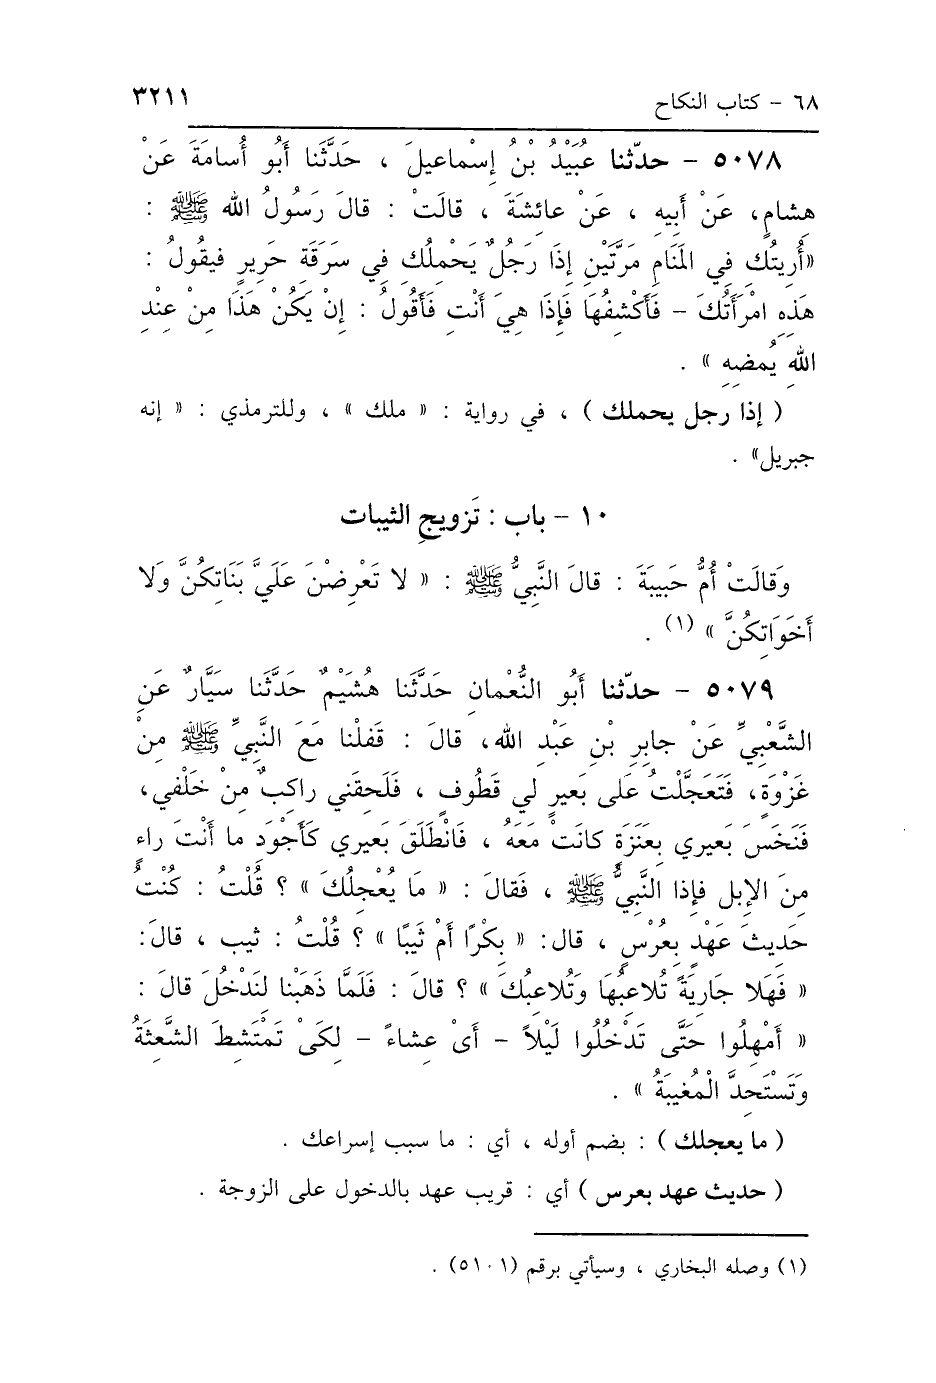 ٦٨ - كتاب النكاح ٣٢١١
٥٠٧٨ - حدّثنا عُبَيْدُ بْنُ إِسْماعيلَ ، حَدَّثَنا أَبُو أُسامَةَ عَنْ
هِشامٍ، عَنْ أَبِيهِ ، عَنْ عائِشَةَ ، قالَتْ : قالَ رَسُولُ اللهِ ﷺ :
«أُرِيتُكِ فِي المَنَامِ مَرَّتَيْنِ إِذَا رَجُلٌ يَحْمِلُكِ فِي سَرَقَةِ حَرِيرٍ فيقُولُ :
هَذِهِ امْرَأَتُكَ - فَأَكْشِفُهَا فَإِذَا هِيَ أَنْتِ فَأَقُولُ : إِنْ يَكُنْ هَذَا مِنْ عِنْدِ
اللهِ يُمضِهِ » .
( إذا رجل يحملك ) ، في رواية : « ملك » ، وللترمذي : « إنه
جبريل» .
١٠ - باب : تَزويجِ الثيبات
وَقالَتْ أُمُّ حَبيبَةَ : قالَ النَّبِيُّ ﷺ : « لا تَعْرِضْنَ عَلَيَّ بَنَاتِكُنَّ وَلا
أَخَوَاتِكُنَّ » (١) .
٥٠٧٩ - حدّثنا أَبُو النُّعْمانِ حَدَّثَنا هُشَيْمٌ حَدَّثَنا سَيَّارٌ عَنِ
الشَّعْبِيِّ عَنْ جابِرِ بْنِ عَبْدِ اللهِ، قالَ : قَفَلْنا مَعَ النَّبِيِّ ﷺ مِنْ
غَزْوَةٍ، فَتَعَجَّلْتُ عَلى بَعيرٍ لي قَطُوفٍ ، فَلَحِقَني راكِبٌ مِنْ خَلْفي،
فَنَخَسَ بَعيري بِعَنَزَةٍ كانَتْ مَعَهُ ، فَانْطَلَقَ بَعيري كَأَجْوَدِ ما أَنْتَ راءٍ
مِنَ الإِبِلِ فإِذا النَّبِيُّ ﷺ ، فَقالَ : « مَا يُعْجِلُكَ » ؟ قُلْتُ : كُنْتُ
حَديثَ عَهْدٍ بِعُرْسٍ ، قال: « بِكْرًا أَمْ ثَيِبًا » ؟ قُلْتُ : ثيب ، قالَ:
« فَهَلا جَارِيَةً تُلاعِبُهَا وَتُلاعِبُكَ » ؟ قالَ : فَلَمَّا ذَهَبْنا لِنَدْخُلَ قالَ :
« أَمْهِلُوا حَتَّى تَدْخُلُوا لَيْلاً - أَىْ عِشاءً - لِكَىْ تَمْتَشِطَ الشَّعِثَةُ
وَتَسْتَحِدَّ الْمُغِيبَةُ » .
( ما يعجلك ) : بضم أوله ، أي : ما سبب إسراعك .
( حديث عهد بعرس ) أي : قريب عهد بالدخول على الزوجة .
(١) وصله البخاري ، وسيأتي برقم (٥١٠١) .